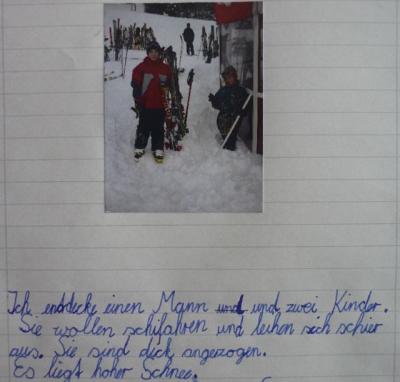 Ich entdecke einen Mann und und zwei Kinder.
Sie wollen schifahren und leihen sich schier
aus. Sie sind dick angezogen.
Es liegt hoher Schnee.